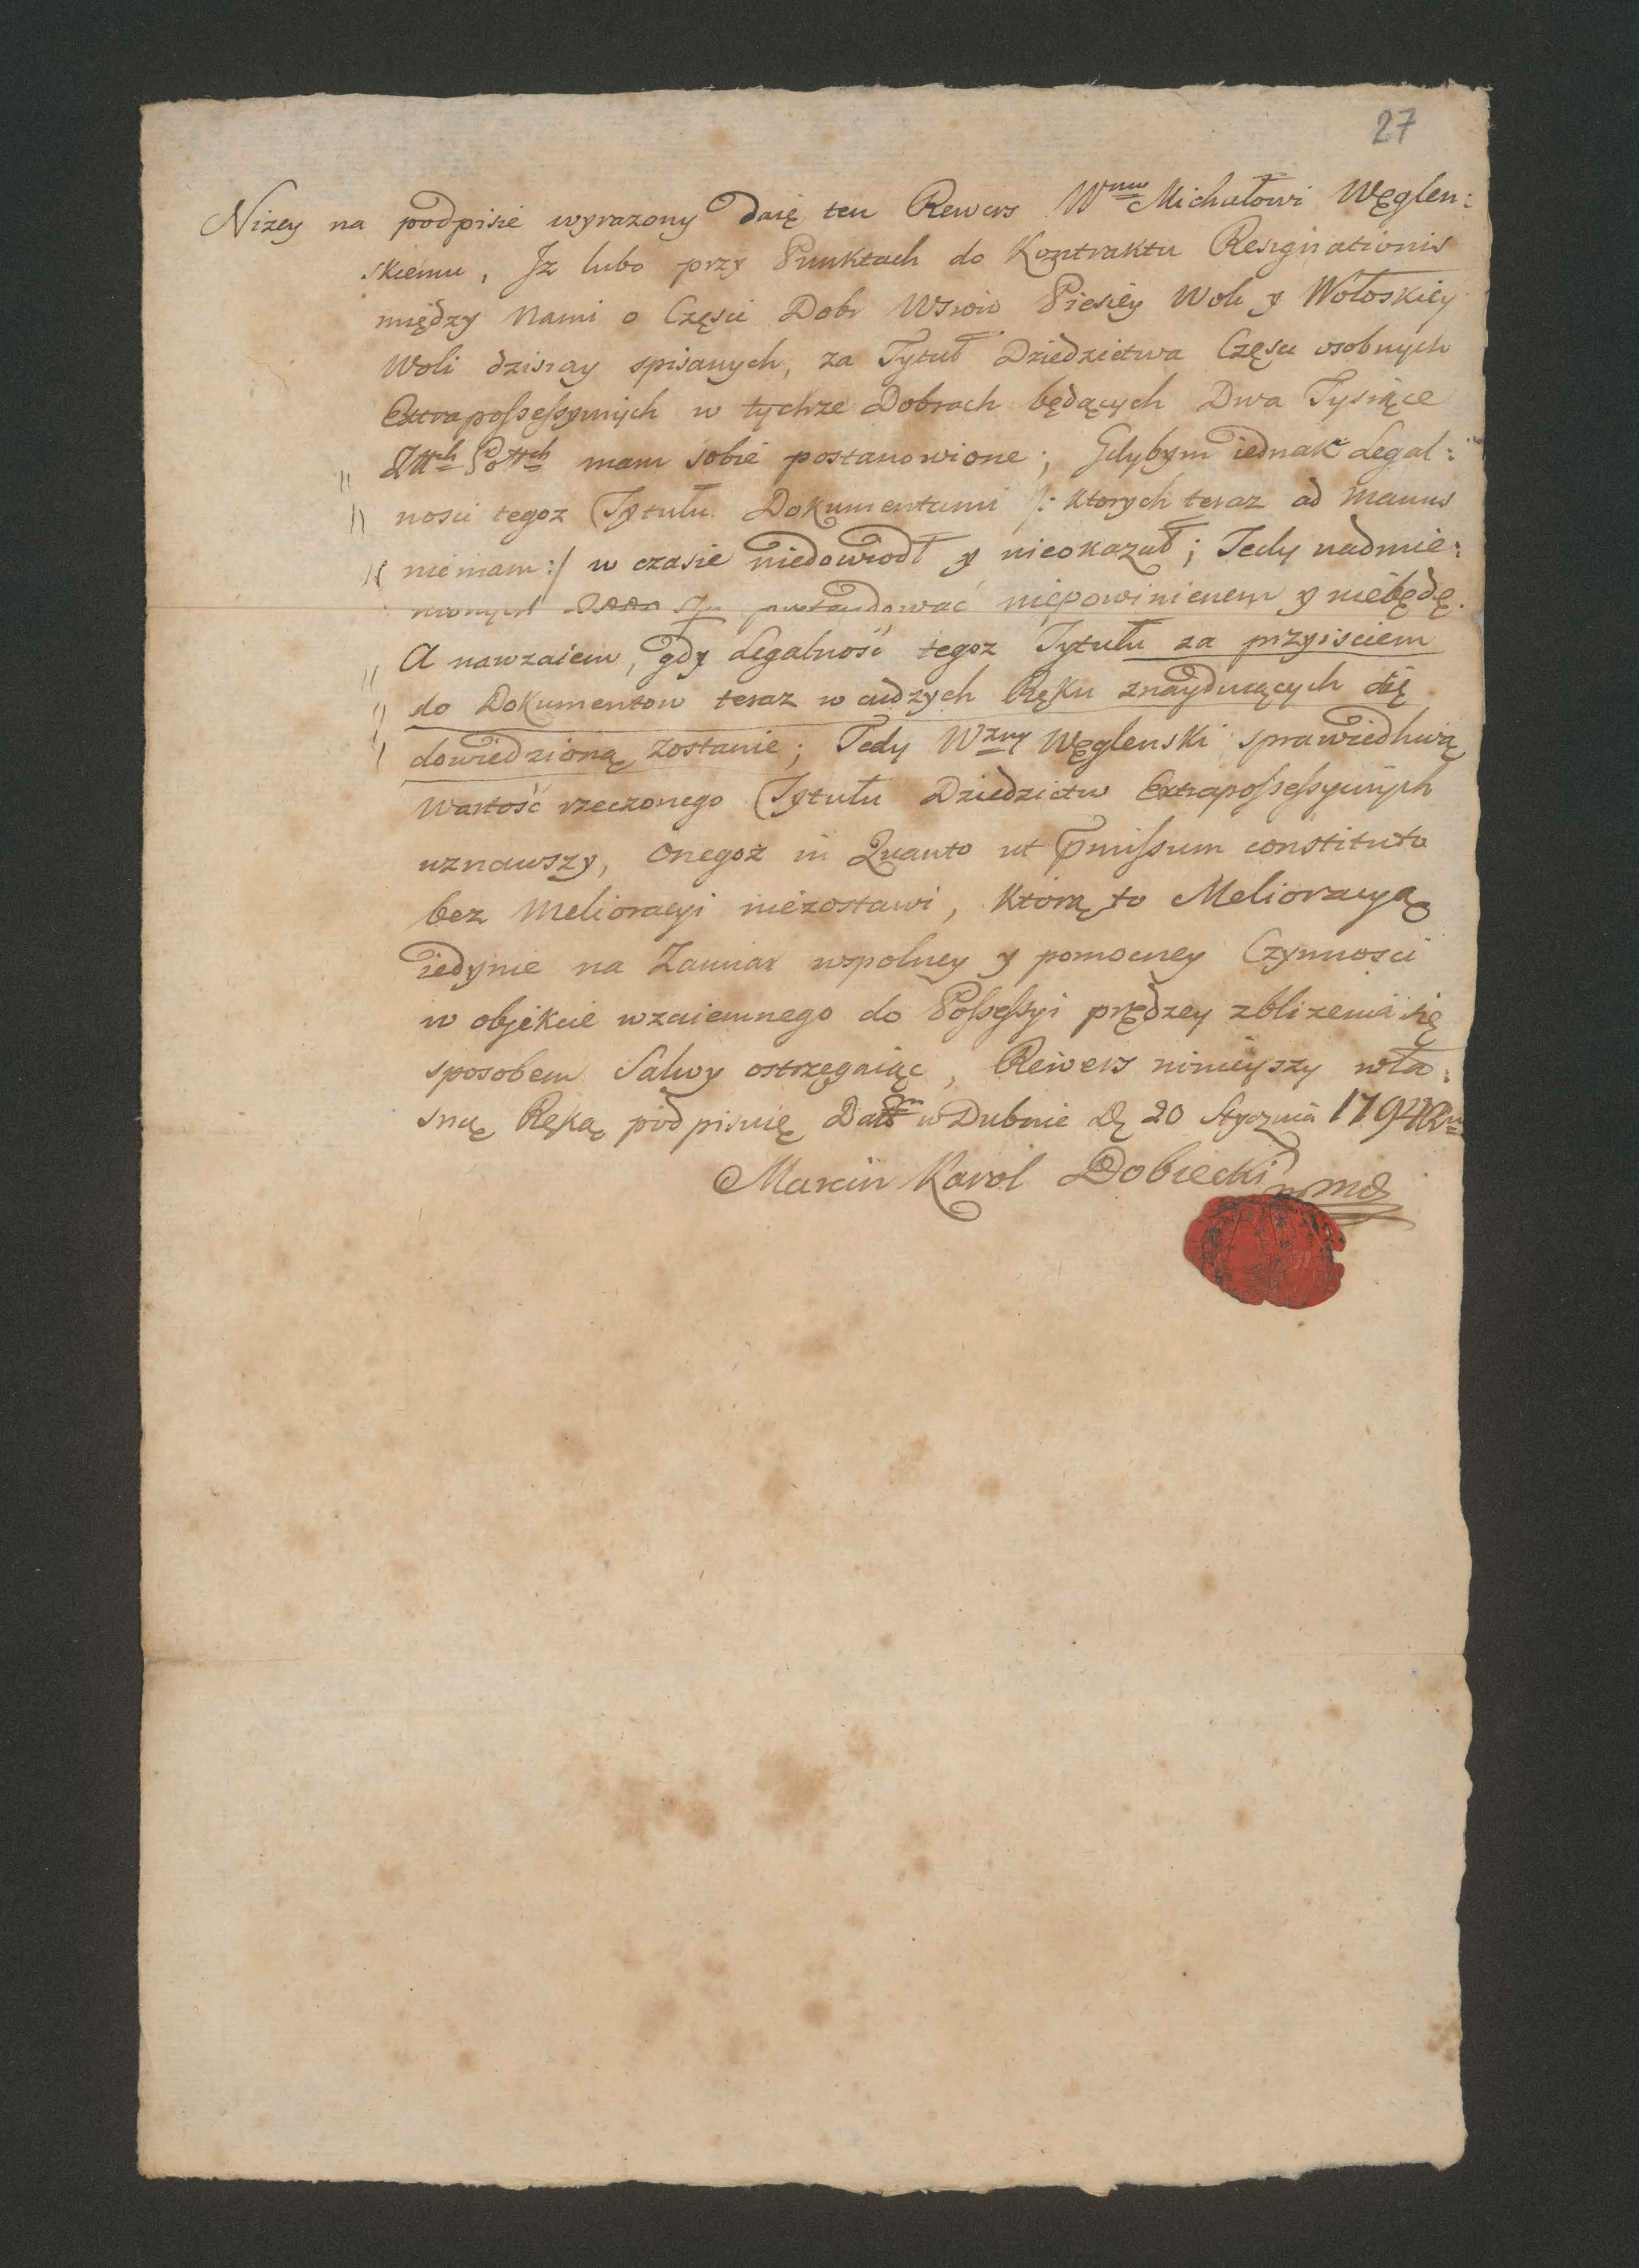 27
Nizey na podpisie wyrazony daię ten Rewers Wmu Michałowi Węglen:
skiemu, Jz lubo przy Punktach do Kontraktu Resignationis
między Nami o Częsci Dobr Wsiow Piesiey Woli y Wołoskiey
Woli dzisiay spisanych, za Tytuł Dziedzictwa Częsci osobnych
Extrapossessyinych w tychze Dobrach będących Dwa Tysiące
Złłch Polłch mam sobie postanowione; Gdybym iednak Legal:
nosci tegoz Tytułu Dokumentami /: ktorych teraz ad manus
nie mam :/ w czasie niedowiodł y nieokazał; Tedy nadmie:
nionych 2000 Zł pretendować niepowinienem y niebędę.
A nawzaiem, gdy Legalność tegoz Tytułu za przyisciem
do Dokumentow teraz w cudzych Ręku znayduiących się
dowiedzioną zostanie; Tedy Wzny Węglenski sprawiedliwą
Wartość rzeczonego Tytułu Dziedzictw Extrapossessyinych
uznawszy, onegoż in Quanto ut pmissum constituto
bez Melioracyi niezostawi, którą to Melioracyą
iedynie na Zamiar wspolney y pomocney Czynnosci
w objekcie wzaiemnego do Possessyi prędzey zblizenia się
sposobem Salwy ostrzegaiąc, Rewers ninieyszy wła:
sną Ręką podpisuię Datt w Dubnie D. 20 Stycznia 1794 Ru
Marcin Karol Dobiecki mp